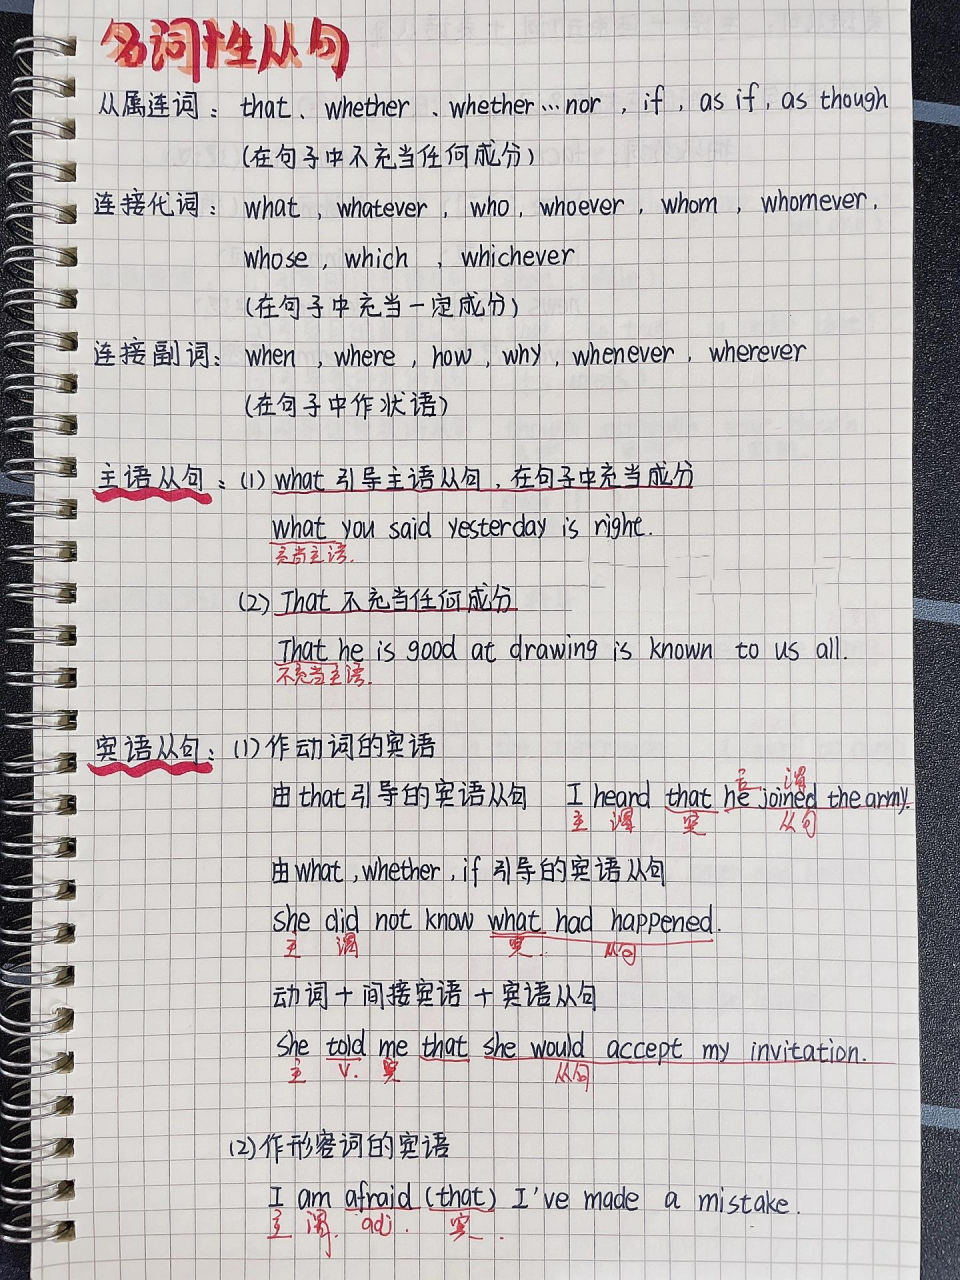 名词性从句
从属连词：that、whether、whether…nor，if，as if，as though
(在句子中不充当任何成分)
连接代词：what，whatever，who，whoever，whom，whomever，
whose，which，whichever
(在句子中充当一定成分)
连接副词：when，where，how，why，whenever，wherever
(在句子中作状语)
主语从句：(1) what 引导主语从句，在句子中充当成分
what you said yesterday is right.
充当主语.
(2) That 不充当任何成分
That he is good at drawing is known to us all.
不充当主语.
宾语从句：(1)作动词的宾语
谓
由that引导的宾语从句 I heard that he joined the army.
主 谓 宾 从句
由what，whether，if 引导的宾语从句
she did not know what had happened.
主 谓 宾. 从句
动词＋间接宾语＋宾语从句
she told me that she would accept my invitation.
主 v. 宾 从句
(2)作形容词的宾语
I am afraid (that) I've made a mistake.
主 谓. adj. 宾.